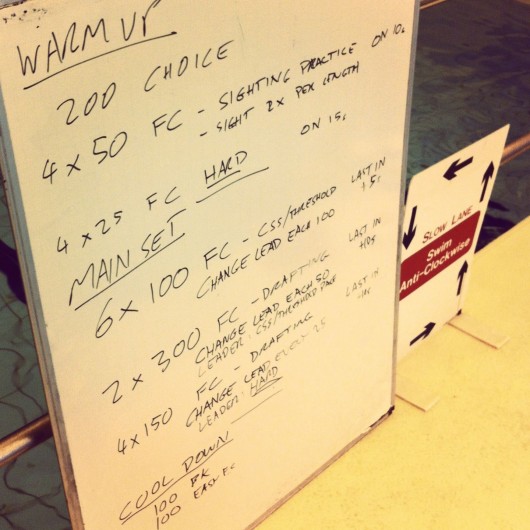 WARM UP
200 CHOICE
4 x 50 FC - SIGHTING PRACTICE ON 10s
- SIGHT 2x PER LENGTH
4 x 25 FC HARD ON 15s
MAIN SET
6 x 100 FC - CSS/THRESHOLD LAST IN
CHANGE LEAD EACH 100 +5s
2 x 300 FC - DRAFTING LAST IN
CHANGE LEAD EACH 50
LEADER: CSS/THRESHOLD PACE
4 x 150 FC - DRAFTING LAST IN
CHANGE LEAD EVERY 25
LEADER: HARD
COOL DOWN
100 BK
100 EASY FC
SLOW LANE
Swim
Anti-Clockwise